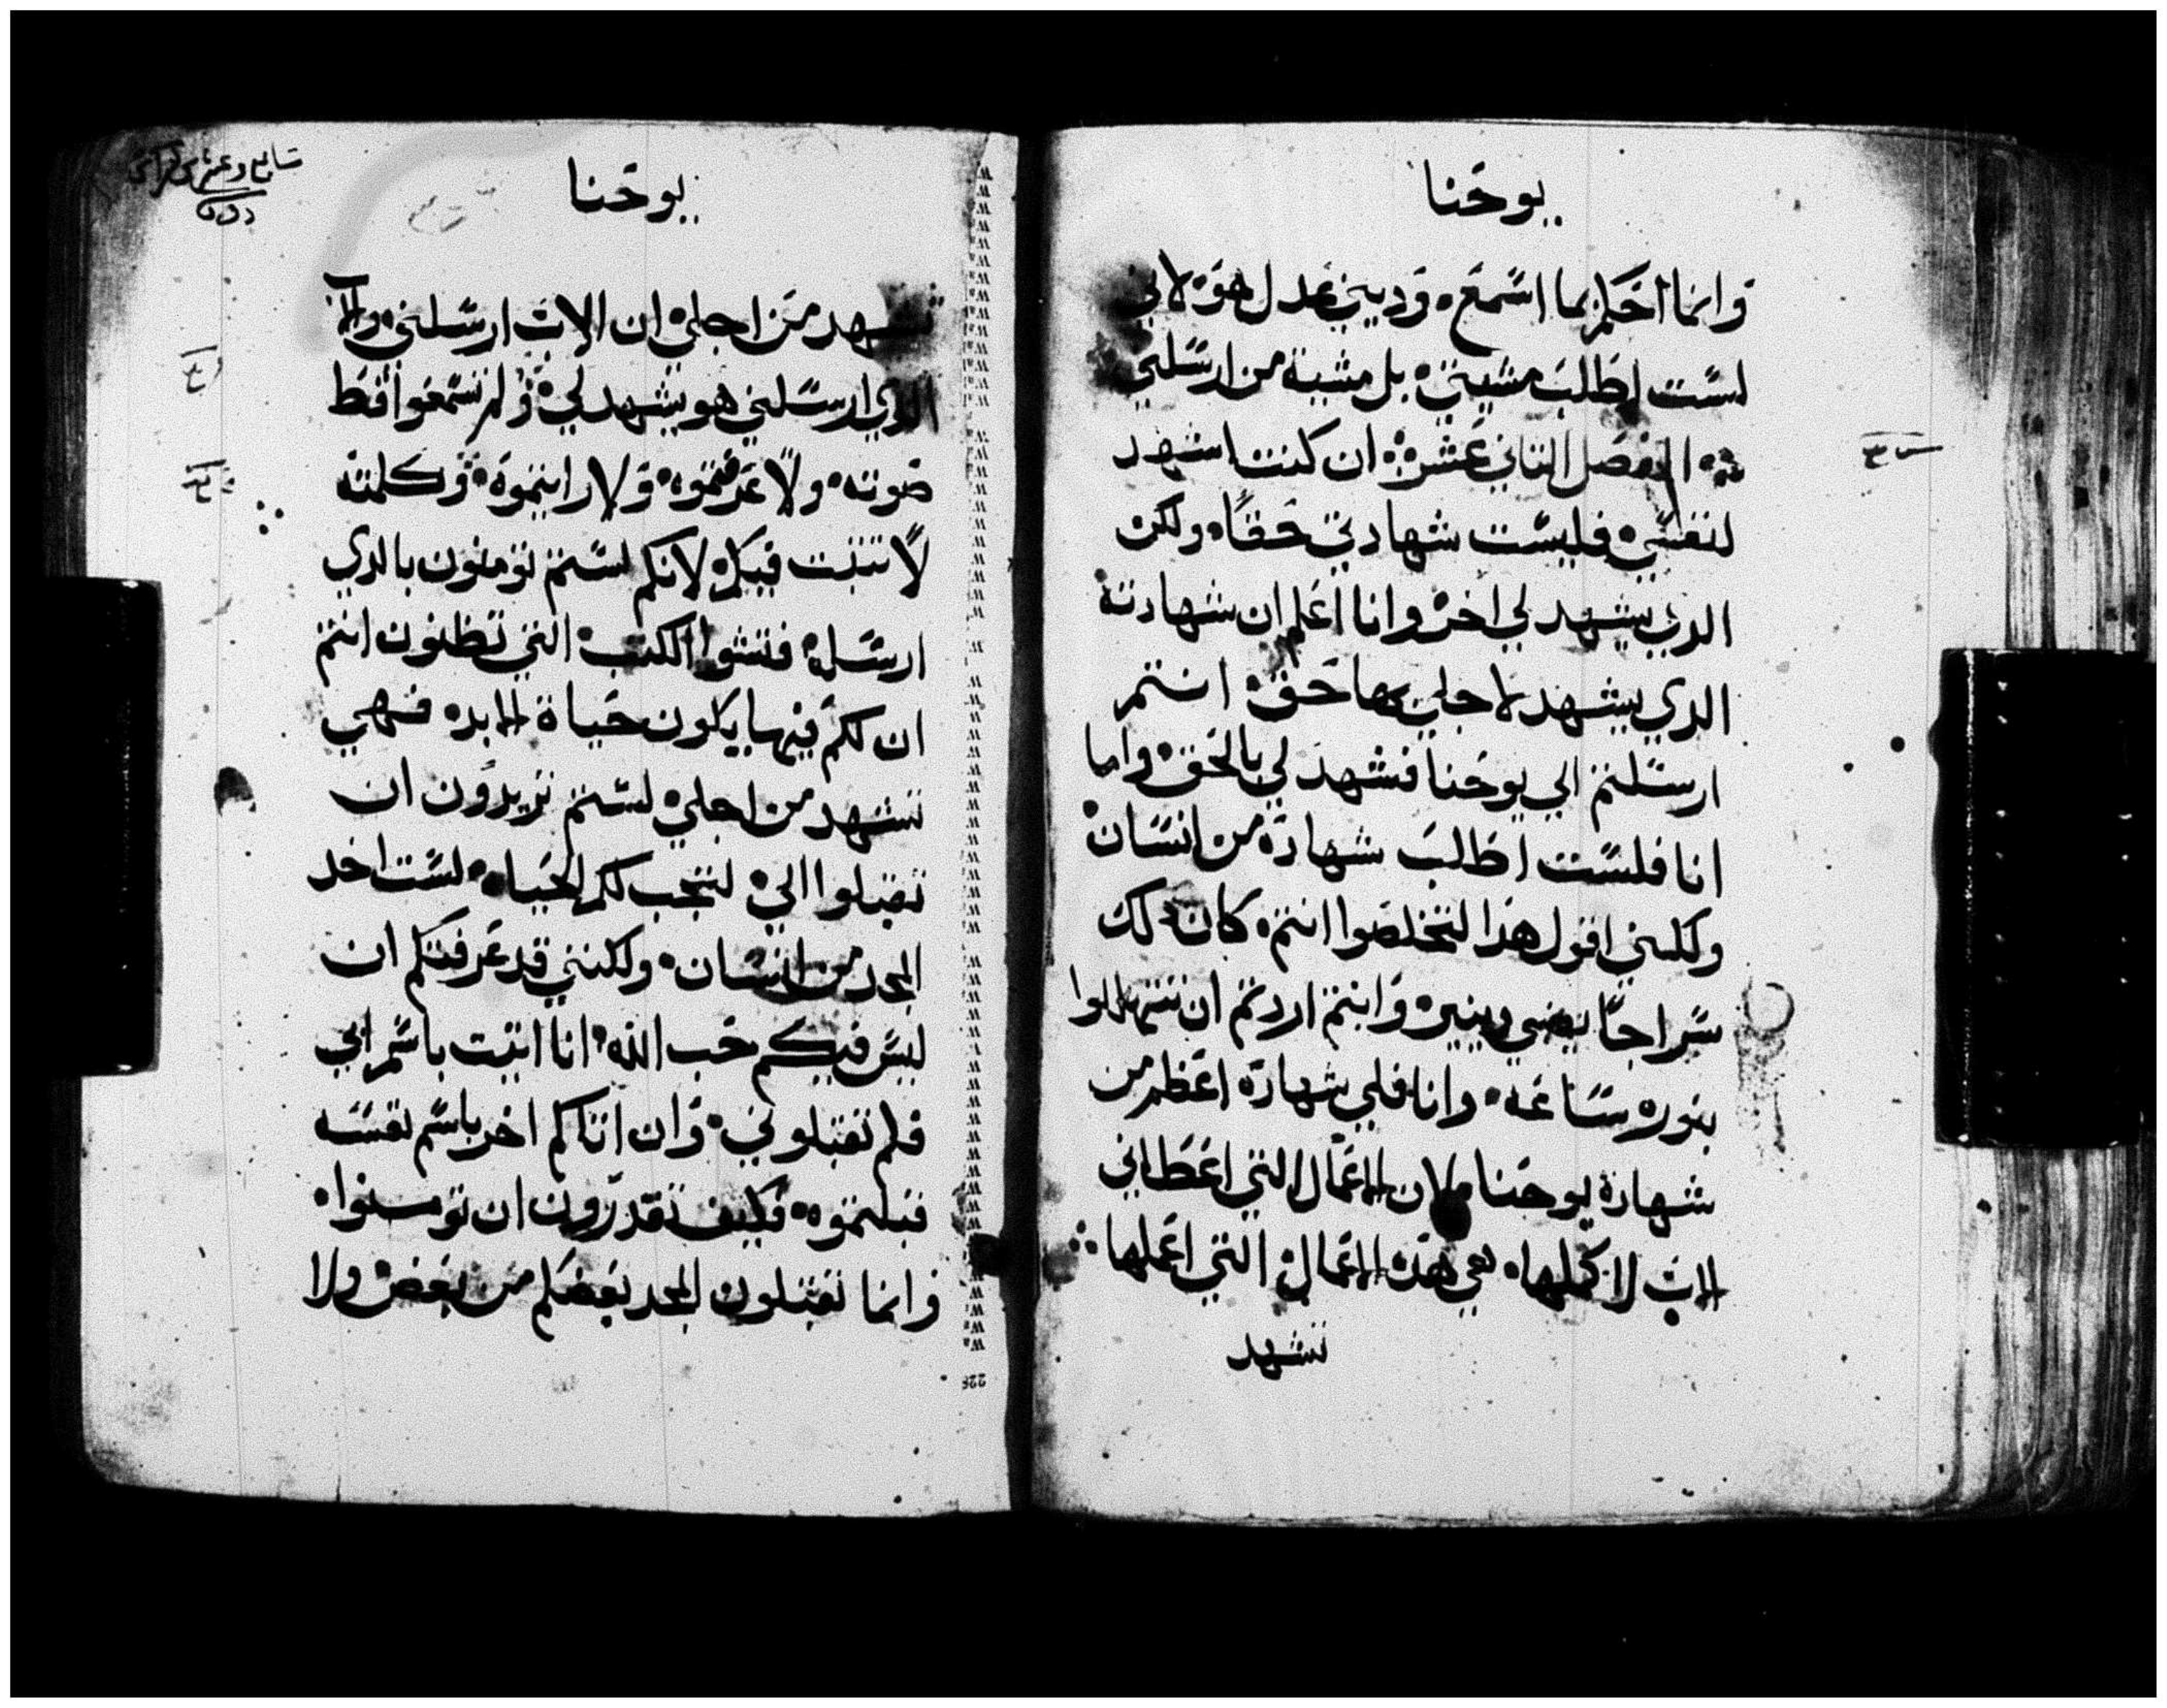 يوحنا
وانما احكم بما اسمع، وديني عدل هو، لاني
لست اطلب مشيتي، بل مشية من ارسلني
الفصل الثاني عشر، ان كنت اشهد
لنفسي، فليست شهادتي حقاً، ولكن
الدي يشهد لي اخر، وانا اعلم ان شهادته
الدي يشهد لاجلي بها حق، انتم
ارسلتم الي يوحنا فشهد لي بالحق، واما
انا فلست اطلب شهادة من انسان،
ولكني اقول هدا لتخلصوا انتم، كان دلك
سراجاً يضي وينير، وانتم اردتم ان تتهللوا
بنوره ساعه، وانا فلي شهادة اعظم من
شهادة يوحنا، لان الاعمال التي اعطاني
الاب لاكملها، هي هده الاعمال التي اعملها
تشهد
يوحنا
تشهد من اجلي، ان الاب ارسلني، والاب
الدي ارسلني هو يشهد لي، ولم تسمعوا قط
صوته، ولا عرفتموه، ولا رايتموه، وكلمته
لا تثبت فيكم، لانكم لستم تومنون بالدي
ارسله، فتشوا الكتب، التي تظنون انتم
ان لكم فيها يكون حياة الابد، فهي
تشهد من اجلي، لستم تريدون ان
تقبلوا الي، لتجب لكم الحياه، لست اخد
المجد من انسان، ولكنني قد عرفتكم ان
ليس فيكم حب الله، انا اتيت باسم ابي
فلم تقبلوني، وان اتاكم اخر باسم نفسه
قبلتموه، فكيف تقدرون ان تومنوا،
وانما تقبلون المجد بعضكم من بعض، ولا